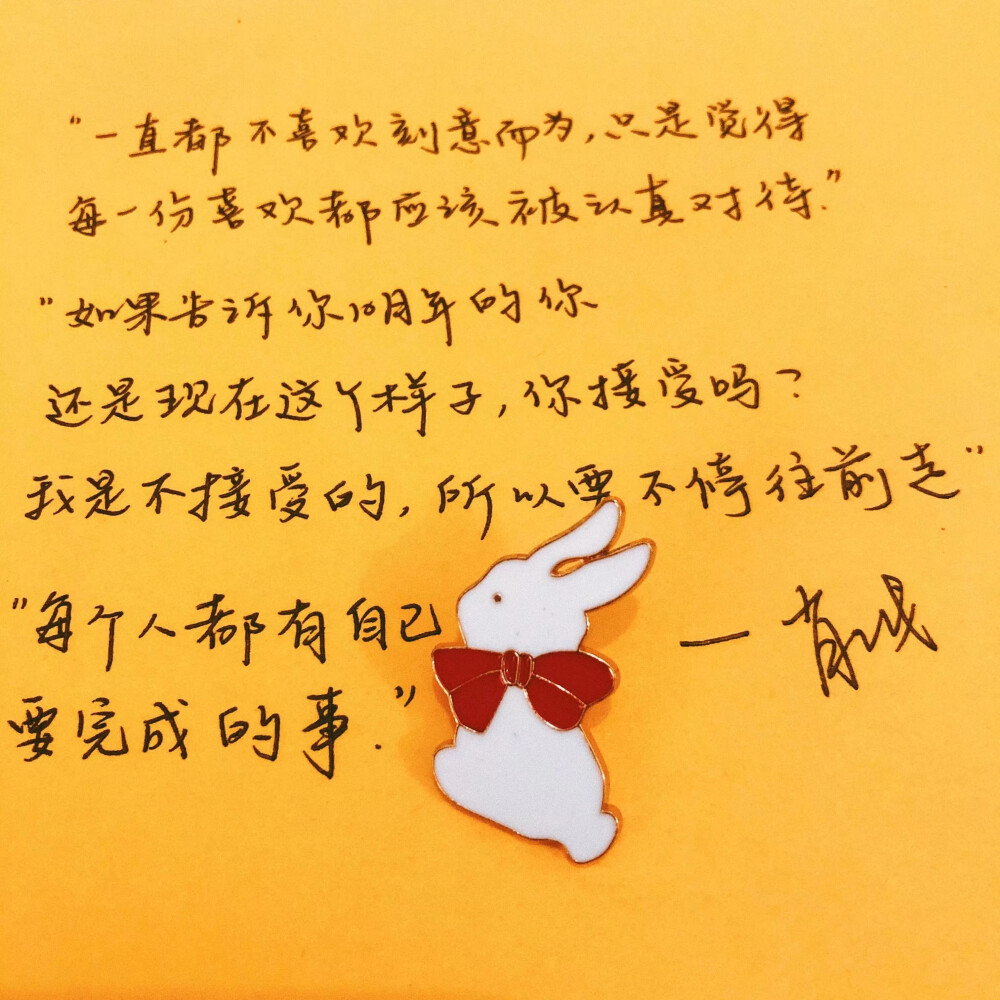 "一直都不喜欢刻意而为，只是觉得
每一份喜欢都应该被认真对待."
"如果告诉你10周年的你
还是现在这个样子，你接受吗？
我是不接受的，所以要不停往前走"
"每个人都有自己
要完成的事."
— 肖战